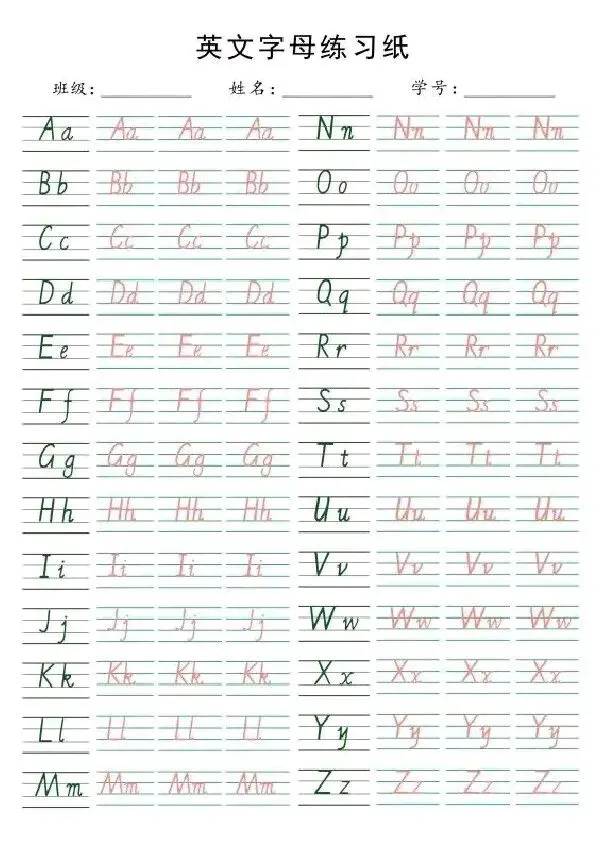 英文字母练习纸
班级: 姓名: 学号:
Aa Aa Aa Aa Nn Nn Nn Nn
Bb Bb Bb Bb Oo Oo Oo Oo
Cc Cc Cc Cc Pp Pp Pp Pp
Dd Dd Dd Dd Qq Qq Qq Qq
Ee Ee Ee Ee Rr Rr Rr Rr
Ff Ff Ff Ff Ss Ss Ss Ss
Gg Gg Gg Gg Tt Tt Tt Tt
Hh Hh Hh Hh Uu Uu Uu Uu
Ii Ii Ii Ii Vv Vv Vv Vv
Jj Jj Jj Jj Ww Ww Ww Ww
Kk Kk Kk Kk Xx Xx Xx Xx
Ll Ll Ll Ll Yy Yy Yy Yy
Mm Mm Mm Mm Zz Zz Zz Zz